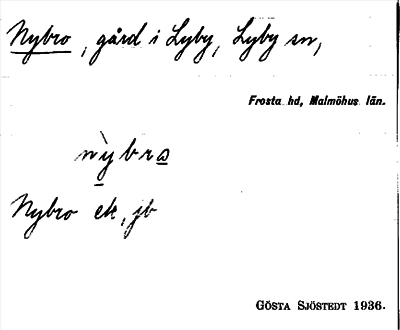 Nybro, gård i Lyby, Lyby sn,
Frosta hd, Malmöhus län.
nỳbro
Nybro ek, jb
GÖSTA SJÖSTEDT 1936.